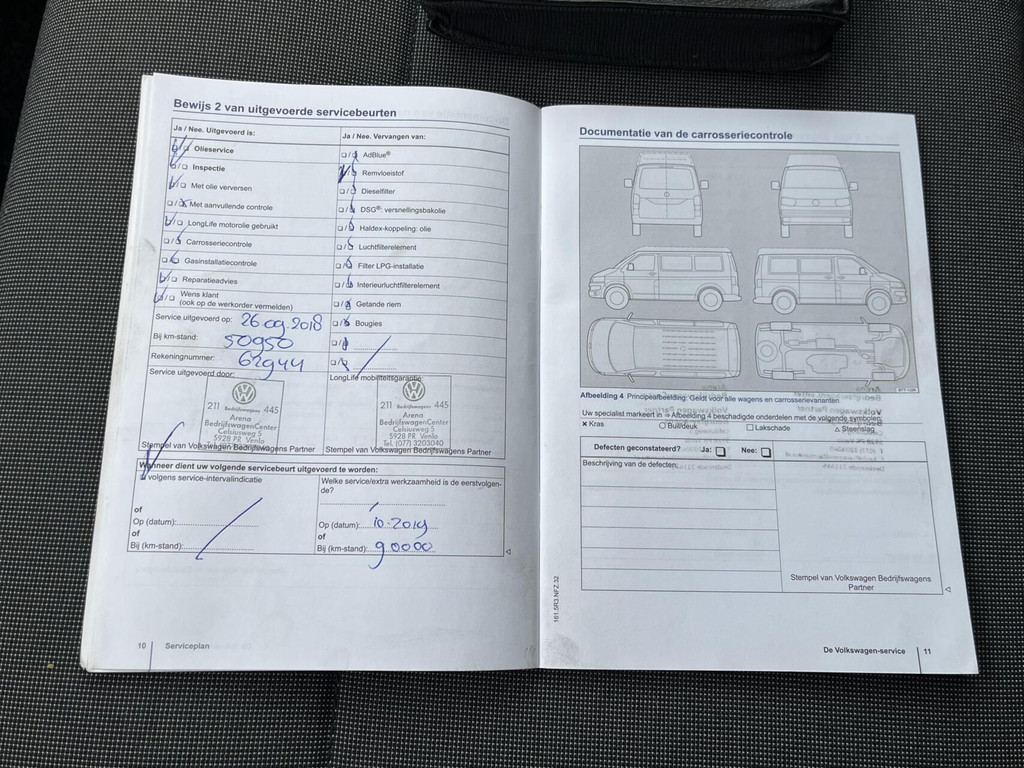 Bewijs 2 van uitgevoerde servicebeurten
Ja / Nee. Uitgevoerd is:
Olieservice
Inspectie
Met olie verversen
Met aanvullende controle
LongLife motorolie gebruikt
Carrosseriecontrole
Gasinstallatiecontrole
Reparatieadvies
Wens klant
(ook op de werkorder vermelden)
Service uitgevoerd op: 26 09 2018
Bij km-stand: 50950
Rekeningnummer: 62944
Ja / Nee. Vervangen van:
AdBlue®
Remvloeistof
Dieselfilter
DSG®: versnellingsbakolie
Haldex-koppeling: olie
Luchtfilterelement
Filter LPG-installatie
Interieurluchtfilterelement
Getande riem
Bougies
Service uitgevoerd door:
211 Bedrijfswagens 445
Arena
BedrijfswagenCenter
Celsiusweg 5
5928 PR Venlo
Tel. (077) 3203040
Stempel van Volkswagen Bedrijfswagens Partner
LongLife mobiliteitsgarantie:
211 Bedrijfswagens 445
Arena
BedrijfswagenCenter
Celsiusweg 5
5928 PR Venlo
Tel. (077) 3203040
Stempel van Volkswagen Bedrijfswagens Partner
Wanneer dient uw volgende servicebeurt uitgevoerd te worden:
volgens service-intervalindicatie
of
Op (datum):
of
Bij (km-stand):
Welke service/extra werkzaamheid is de eerstvolgen-
de?
Op (datum): 10-2019
of
Bij (km-stand): 90000
10 Serviceplan
Documentatie van de carrosseriecontrole
Afbeelding 4 Principeafbeelding: Geldt voor alle wagens en carrosserievarianten.
Uw specialist markeert in ⇒ Afbeelding 4 beschadigde onderdelen met de volgende symbolen:
× Kras ○ Buil/deuk □ Lakschade △ Steenslag
Defecten geconstateerd? Ja: Nee:
Beschrijving van de defecten:
Stempel van Volkswagen Bedrijfswagens
Partner
161.5R3.NFZ.32
De Volkswagen-service 11